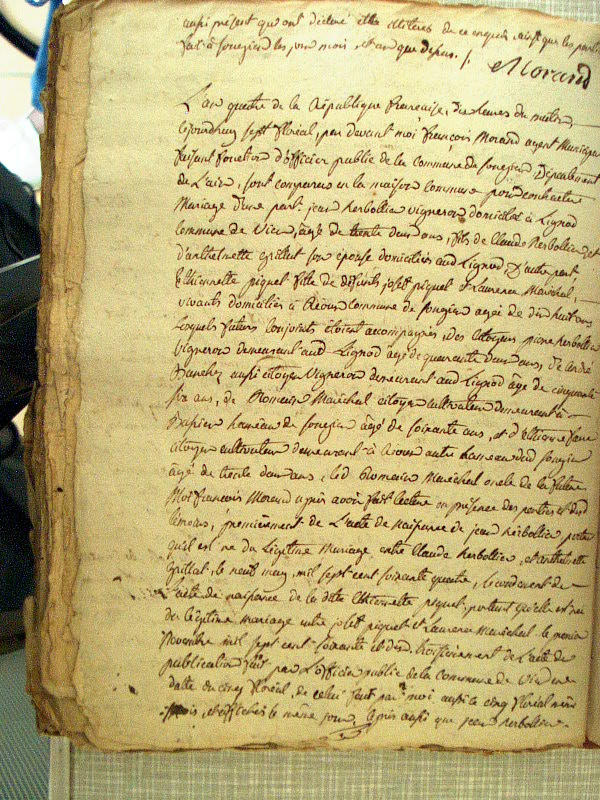 aussi présent qui ont déclaré être de ce enquis ainsi que les parties
fait à songieu les jour mois et an que depus. /.
Morand
L'an quatre de la République française, dix heures du matin,
Ejourdhuy sept floréal, par devant moi françois Morand agent Municipal
faisant fonction d'officier public de la commune du songieu, Département
de L'ain, sont comparus en la maison commune pour contracter
Mariage d'une part jean herbollier vigneron domicilié à Lignod
commune de Vieu, âgé de trente deux ans, fils de Claude herbollier, et
d'anthelmette grillat son épouse domiciliés aud Lignod D'autre part
Ethiennette piquet fille de défunts josef piquet et Laurence Maréchal,
vivants domiciliés à commune de songieu agée de dix huit ans
Lesquels futurs conjoints étoient accompagnés, des Citoyens pierre herbollier
vigneron demeurent aud Lignod âgé de quarente deux ans, de andré
aussi citoyen Vigneron demeurent aud Lignod âgé de cinquante
ans, de Romain Maréchal citoyen cultivateur demeurent à
hameau de songieu âgé de soixante ans, et d'Etienne
citoyen cultivateur demeurent à autre hameau dud songieu
âgé de trente deux ans, led Romain Maréchal oncle de la future
Moi francois Morand après avoir fait lecture en présence des parties et des
témoins, premièrement de L'acte de naissance de jean herbollier portant
qu'il est né du Légitime Mariage entre Claude herbollier, et anthelmette
Grillat, le neuf mil sept cent soixante quatre, secondement de
L'acte de naissance de la dite Ethiennette piquet, portant qu'elle est née
du légitime mariage entre josef piquet et Laurence Maréchal le premier
Novembre mil sept cent soixante et dix, troisiemement de L'acte de
publication fait par L'officier public de la Commune de Vieu en
datte du cinq floréal, de celui fait par moi aussi le cinq floréal même
mois, et affiches le même jour, après aussi que jean herbollier